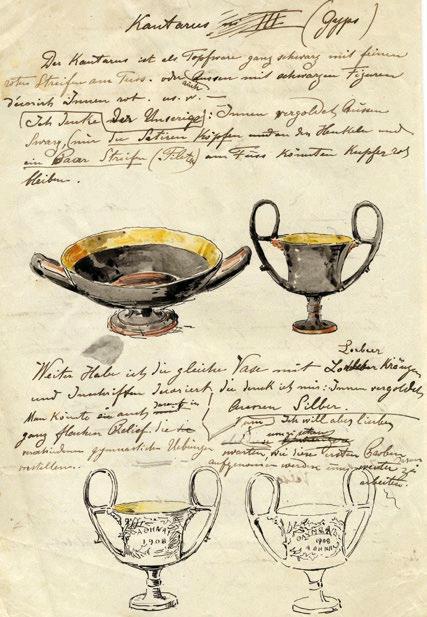 Kantarus no III (Gyps)
Der Kantarus ist als Topfware ganz schwarz mit feinen
roten Streifen am Fuss. oder auch Aussen mit schwarzen Figuren
Innen rot. us. w. —
Ich denke Der Unserige: Innen vergoldet, Aussen
Swarz, (nur die Satiren Köpfen und an der Henkeln und
ein Paar Streifen am Fuss könnten Kupfer rot
bleiben.
Weiter Habe ich die gleiche Vase mit Lorbeer Kränzen
und Inschriften die denk ich mir: Innen vergoldet
Aussen Silber.
Man könnte sie auch
ganz flachen Relief. die
verschiedenen gymnastischen Uebungen
vorstellen.
Ich will aber lieber
warten, wie diese ersten Proben
aufgenommen werden und weiter zu
arbeiten.
1908
1908